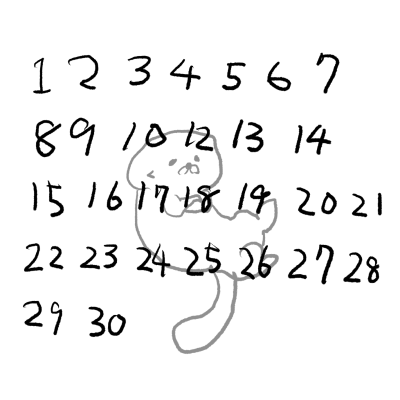 1 2 3 4 5 6 7
8 9 10 12 13 14
15 16 17 18 19 20 21
22 23 24 25 26 27 28
29 30